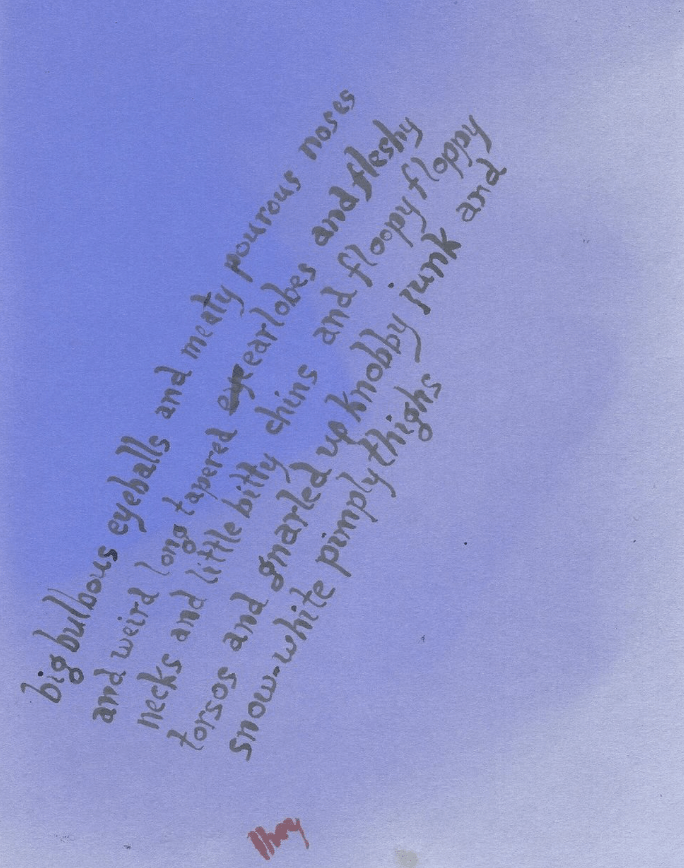 big bulbous eyeballs and meaty pourous noses
and weird long tapered earlobes and fleshy
necks and little bitty chins and floopy floppy
torsos and gnarled up knobby junk and
snow-white pimply thighs